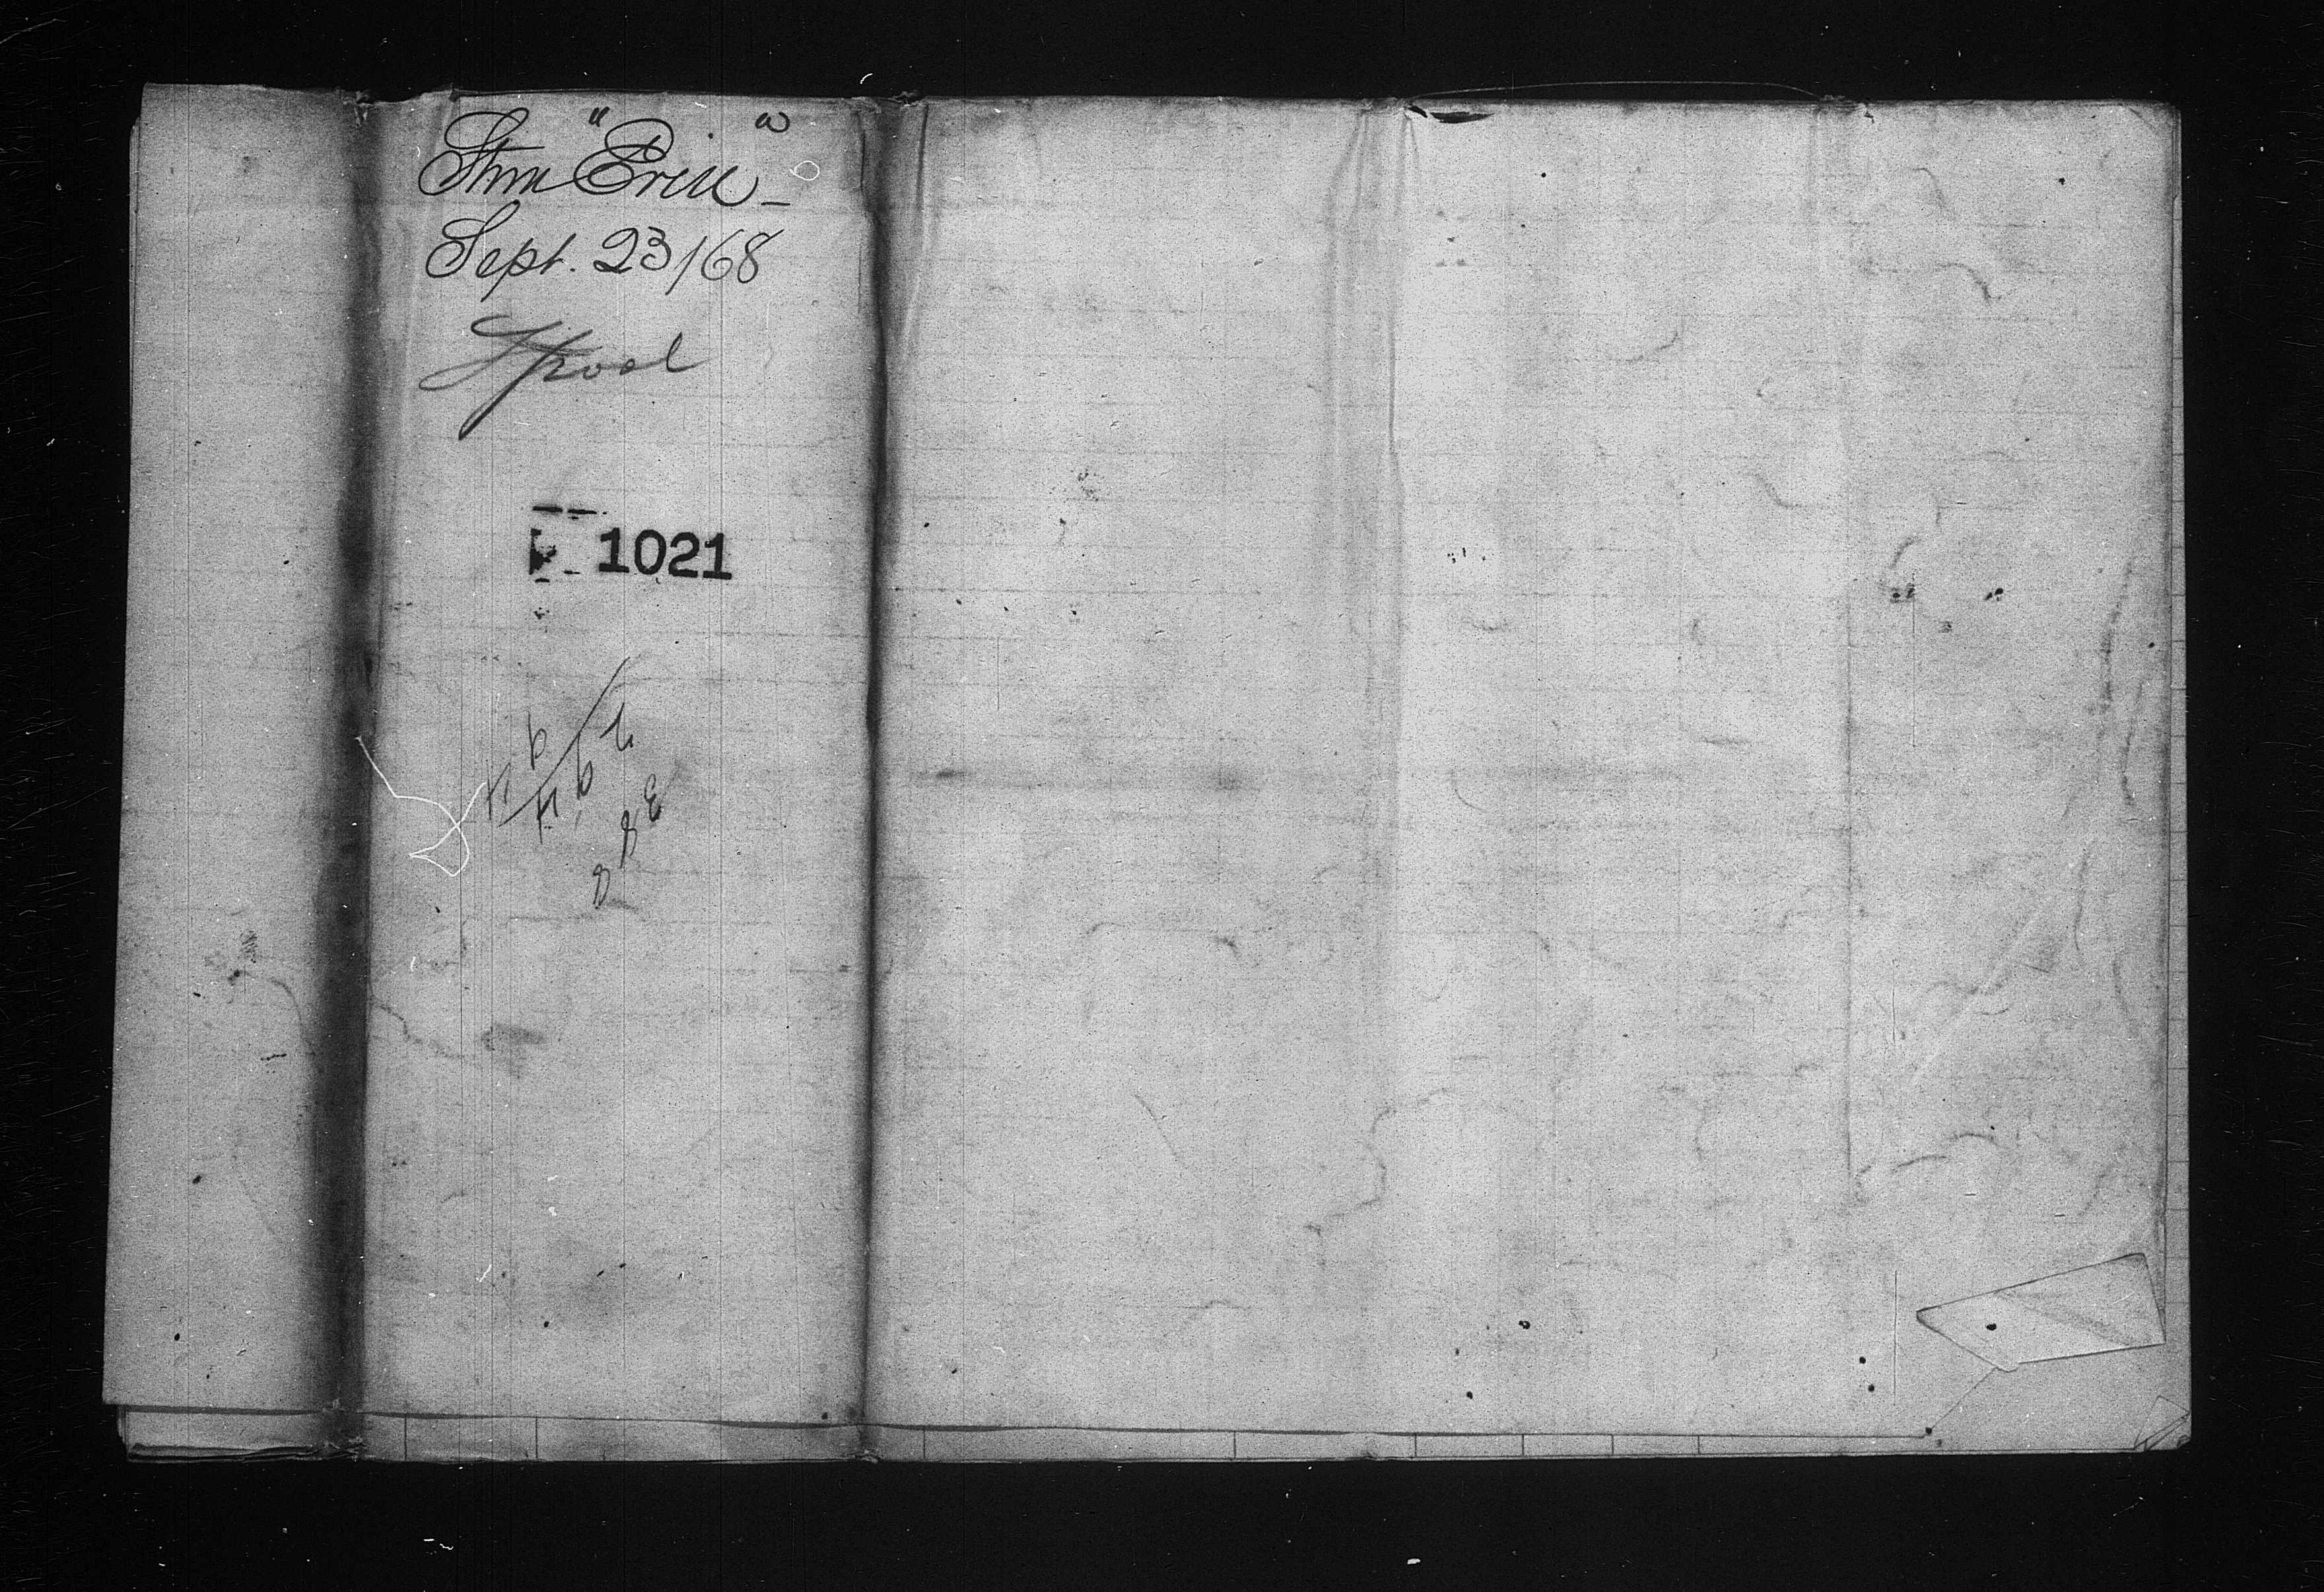 Stm "Erin" -
Sept. 23/68
Lpool
1021